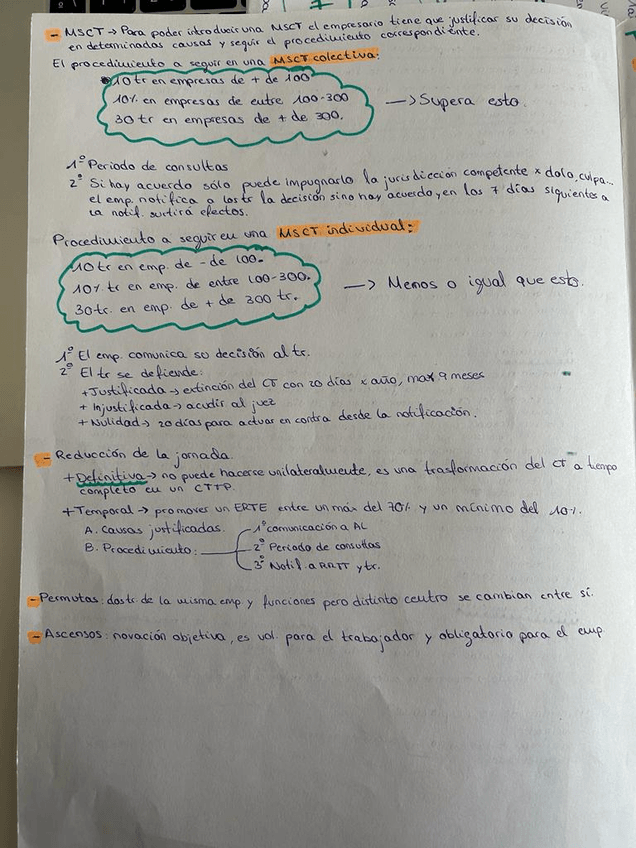 - MSCT → Para poder introducir una MSCT el empresario tiene que justificar su decisión
en determinadas causas y seguir el procedimiento correspondiente.
El procedimiento a seguir en una MSCT colectiva:
10 tr en empresas de + de 100
10% en empresas de entre 100-300
30 tr en empresas de + de 300.
→ Supera esto.
1º Periodo de consultas
2º Si hay acuerdo sólo puede impugnarlo la jurisdicción competente x dolo, culpa...
el emp. notifica a los tr la decisión si no hay acuerdo, en los 7 días siguientes a
la notif. surtirá efectos.
Procedimiento a seguir en una MSCT individual:
10 tr en emp. de - de 100.
10% tr en emp. de entre 100-300.
30 tr. en emp. de + de 300 tr.
→ Menos o igual que esto.
1º El emp. comunica su decisión al tr.
2º El tr se defiende:
+ Justificada → extinción del CT con 20 días x año, max 9 meses
+ Injustificada → acudir al juez
+ Nulidad → 20 días para actuar en contra desde la notificación.
- Reducción de la jornada.
+ Definitiva → no puede hacerse unilateralmente, es una trasformación del CT a tiempo
completo en un CTTP.
+ Temporal → promover un ERTE entre un máx del 70% y un mínimo del 10%.
A. Causas justificadas.
B. Procedimiento:
1º comunicación a AL
2º Periodo de consultas
3º Notif. a RRTT y tr.
- Permutas: dos tr. de la misma emp y funciones pero distinto centro se cambian entre sí.
- Ascensos: novación objetiva, es vol. para el trabajador y obligatorio para el emp